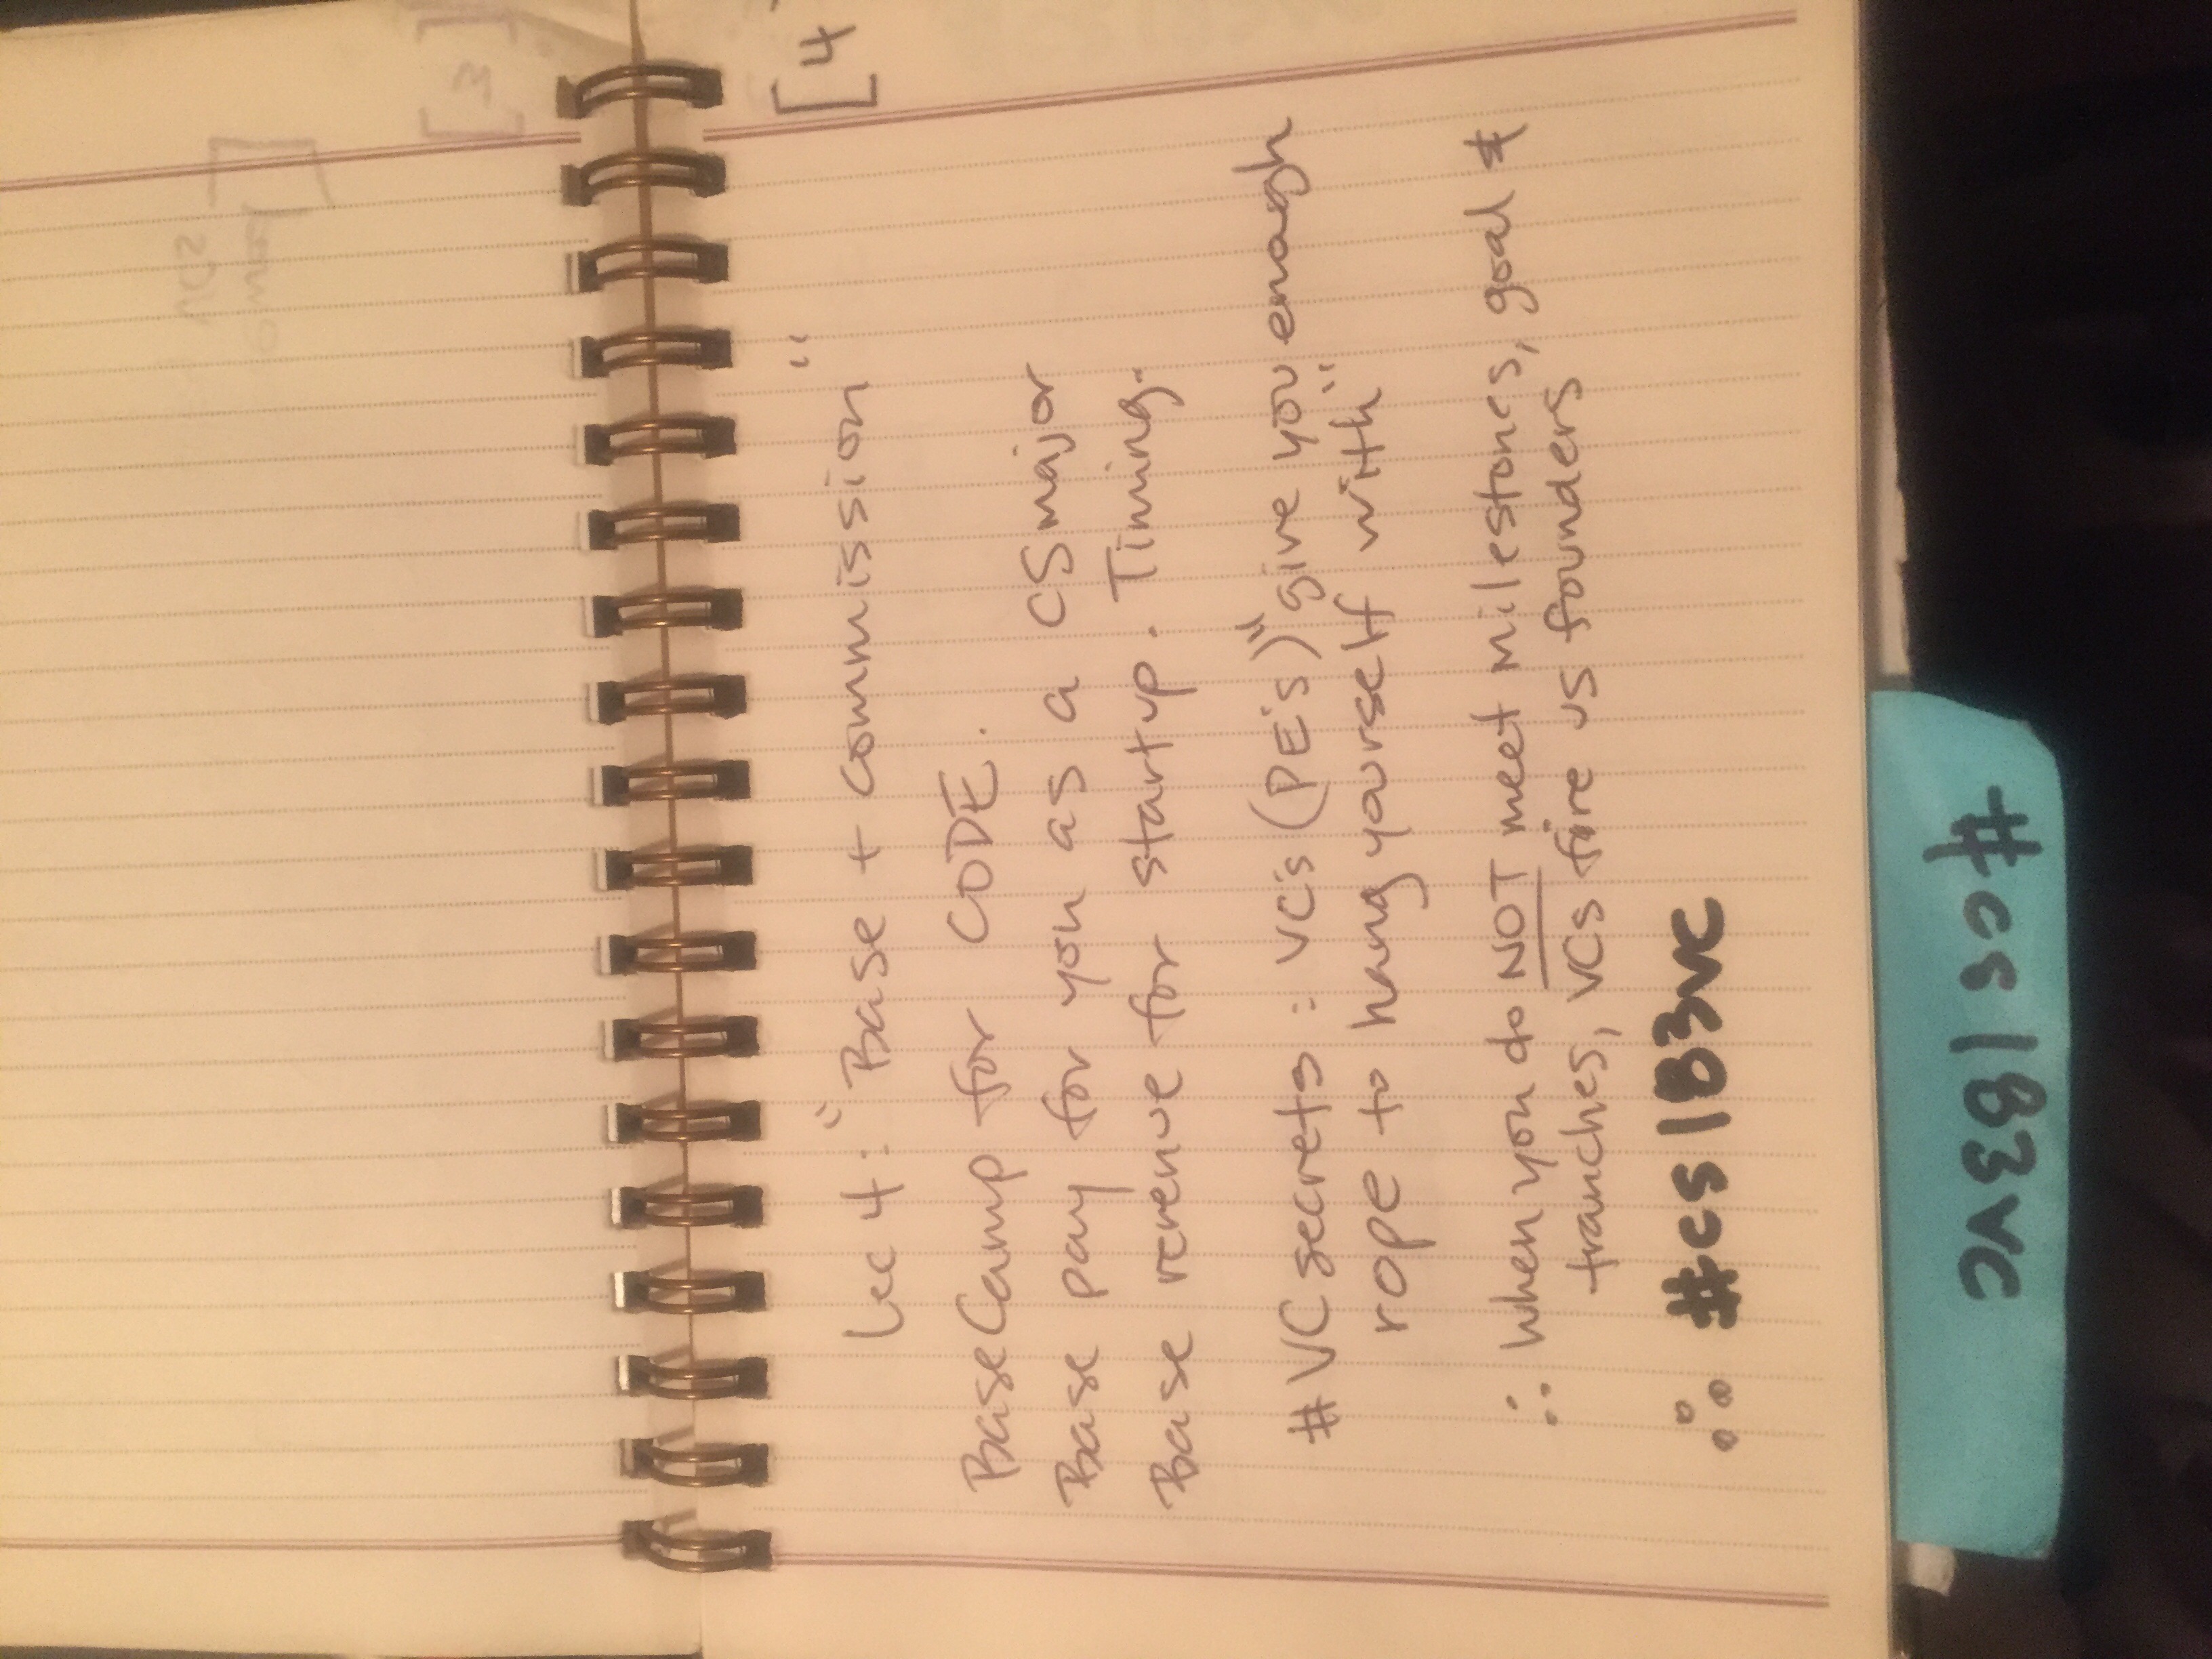 [4
Lec 4: "Base + Commission"
BaseCamp for CODE.
Base pay for you as a CS major
Base revenue for startup. Timing.
#VC secrets: VC's (PE's) "give you enough
rope to hang yourself with"
∴ when you do NOT meet milestones, goal #
tranches, VCs fire us founders
∴ #cs183vc
#cs183vc